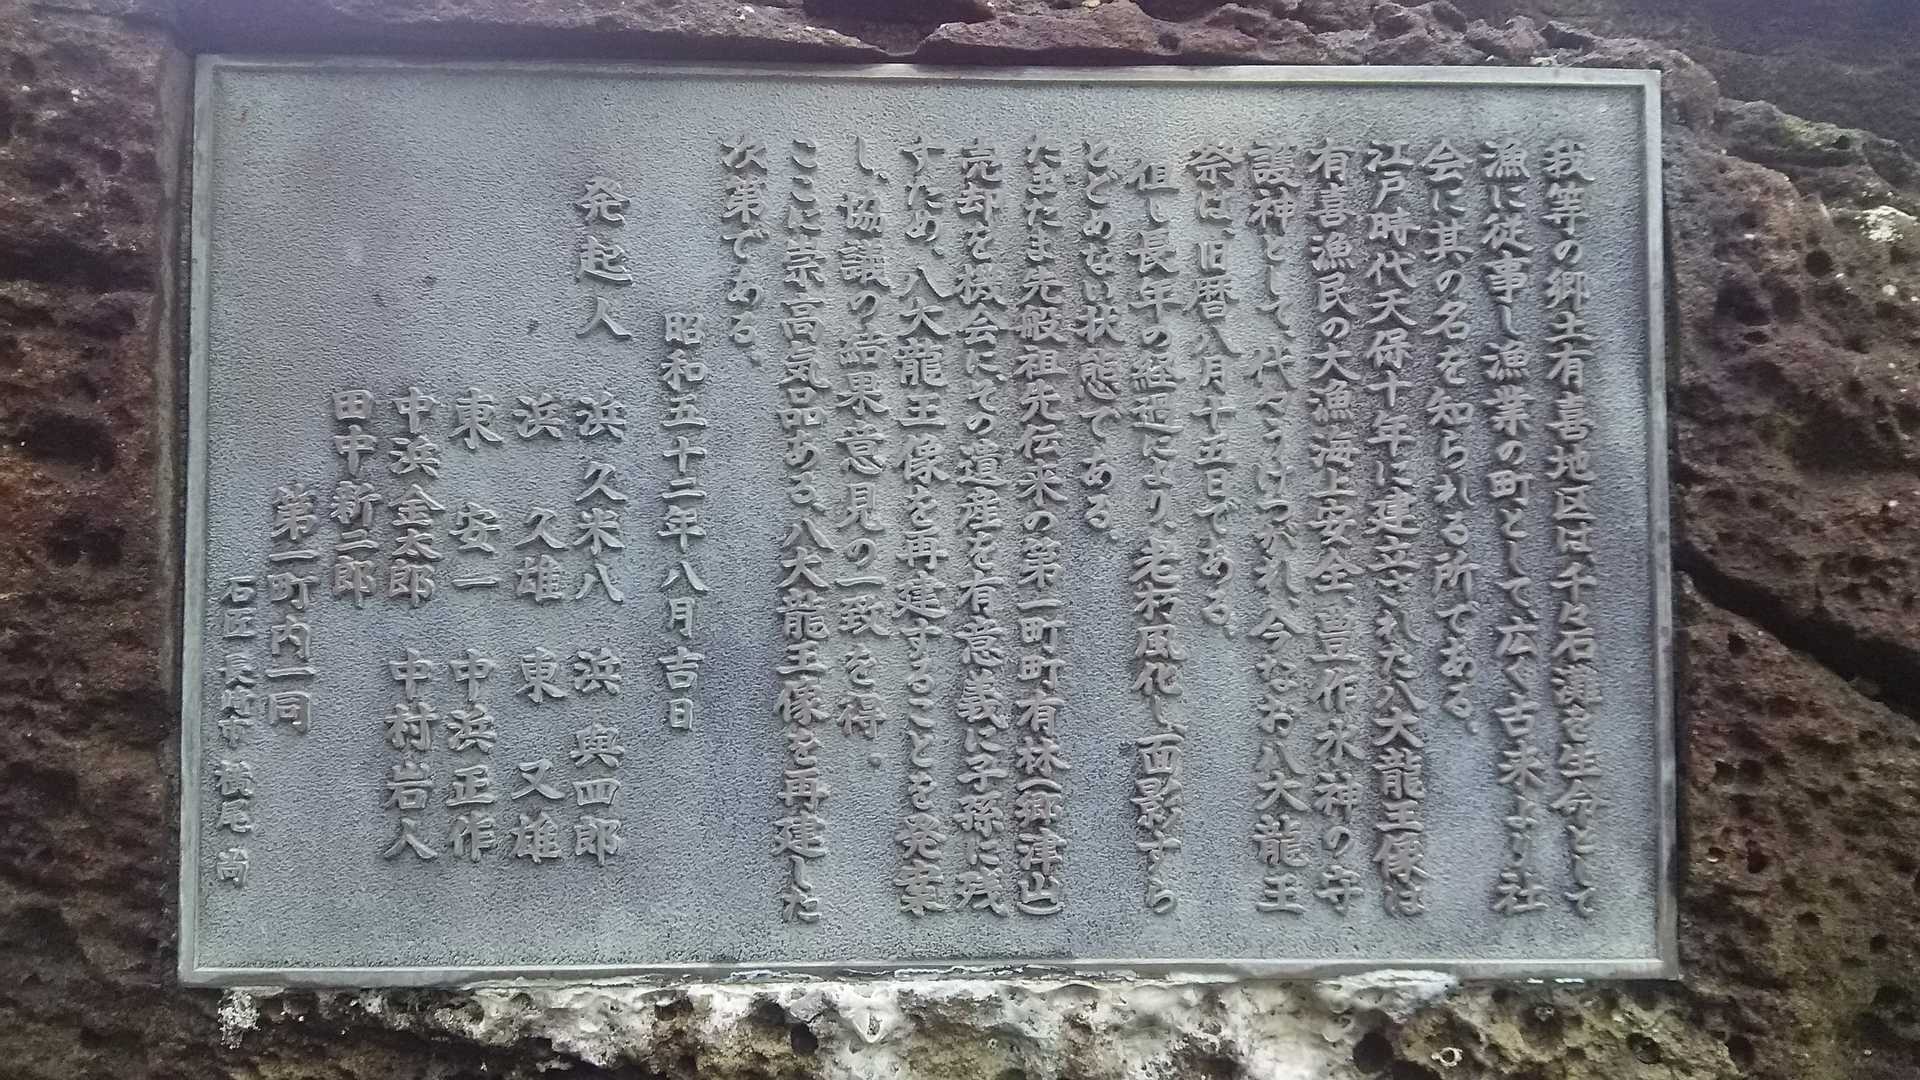 我等の郷土有喜地区は千々石灘を生命として
漁に従事し漁業の町として、広く古来より社
会に其の名を知られる所である、
江戸時代天保十年に建立された八大龍王像は
有喜漁民の大漁海上安全、豊作水神の守
護神として、代々うけつがれ、今なお八大龍王
祭は、旧暦八月十五日である、
但し長年の経過により、老朽風化し面影すら
とどめない状態である、
たまたま先般祖先伝来の第一町町有林（郷津山）
売却を機会に、その遺産を有意義に子孫に残
すため、八大龍王像を再建することを発案
し、協議の結果意見の一致を得、
ここに崇高気品ある、八大龍王像を再建した
次第である、
昭和五十二年八月吉日
発起人 浜久米八 浜與四郎
浜久雄 東又雄
東安一 中浜正作
中浜金太郎 中村岩人
田中新二郎
第一町内一同
石匠 長崎市 尾 尚